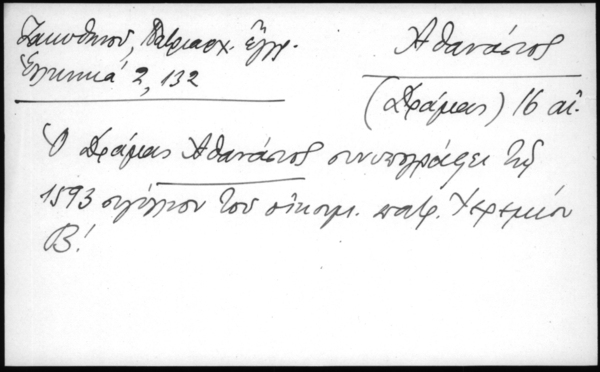 Ζακυθηνοῦ, Πατριαρχ. ἔγγρ.
Ἑλληνικά 2, 132
Ἀθανάσιος
(Δράμας) 16 αἰ.
Ὁ Δράμας Ἀθανάσιος συνυπογράφει τῷ
1593 σιγίλλιον τοῦ οἰκουμ. πατρ. Ἱερεμίου
Β!